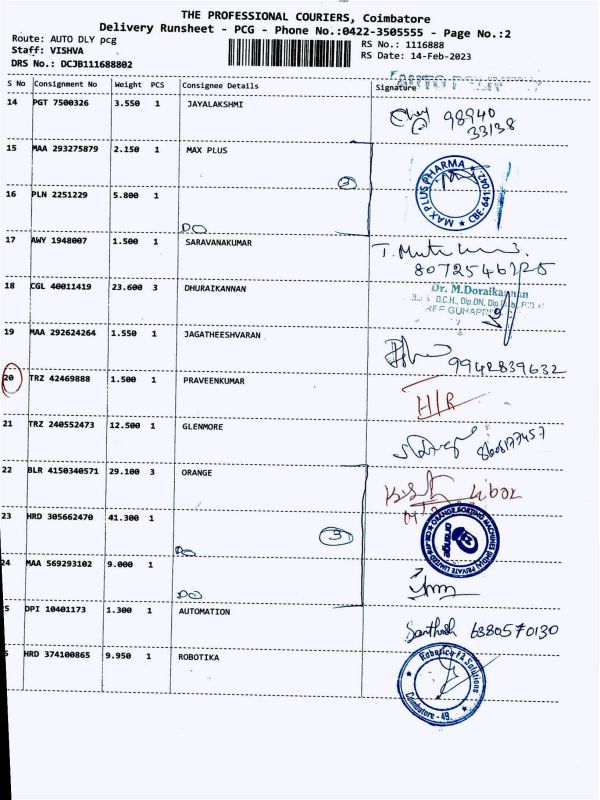 THE PROFESSIONAL COURIERS, Coimbatore
Delivery Runsheet - PCG - Phone No.:0422-3505555 - Page No.:2
Route: AUTO DLY pcg
RS No.: 1116888
Staff: VISHVA
RS Date: 14-Feb-2023
DRS No.: DCJB111688802
S No Consignment No Weight PCS Consignee Details Signature
14 PGT 7500326 3.550 1 JAYALAKSHMI
98940
33138
15 MAA 293275879 2.150 1 MAX PLUS
3
MAX PLUS PHARMA CBE-641 042.
16 PLN 2251229 5.800 1
DO
17 AWY 1948007 1.500 1 SARAVANAKUMAR
8072546725
18 CGL 40011419 23.600 3 DHURAIKANNAN
Dr. M.Doraikannan
D.C.H., Dip.DN,
19 MAA 292624264 1.550 1 JAGATHEESHVARAN
9942839632
20 TRZ 42469888 1.500 1 PRAVEENKUMAR
H/R
21 TRZ 240552473 12.500 1 GLENMORE
22 BLR 4150340571 29.100 3 ORANGE
23 HRD 305662470 41.300 1
DO
3
ORANGE SORTING MACHINES (INDIA) PRIVATE LIMITED
orange
24 MAA 569293102 9.000 1
DO
5 DPI 10401173 1.300 1 AUTOMATION
Santhosh 6380570130
HRD 374100865 9.950 1 ROBOTIKA
Solutions
Coimbatore - 49.